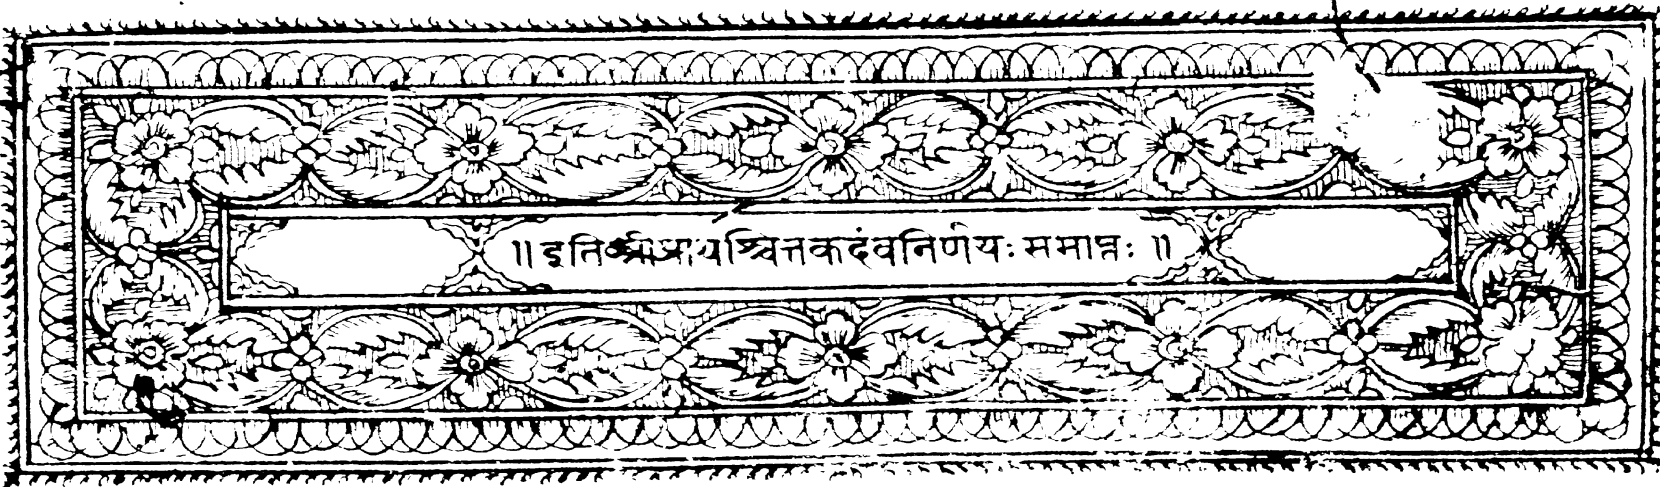 ॥ इति श्रीप्रायश्चित्तकदंबनिर्णयः समाप्तः ॥